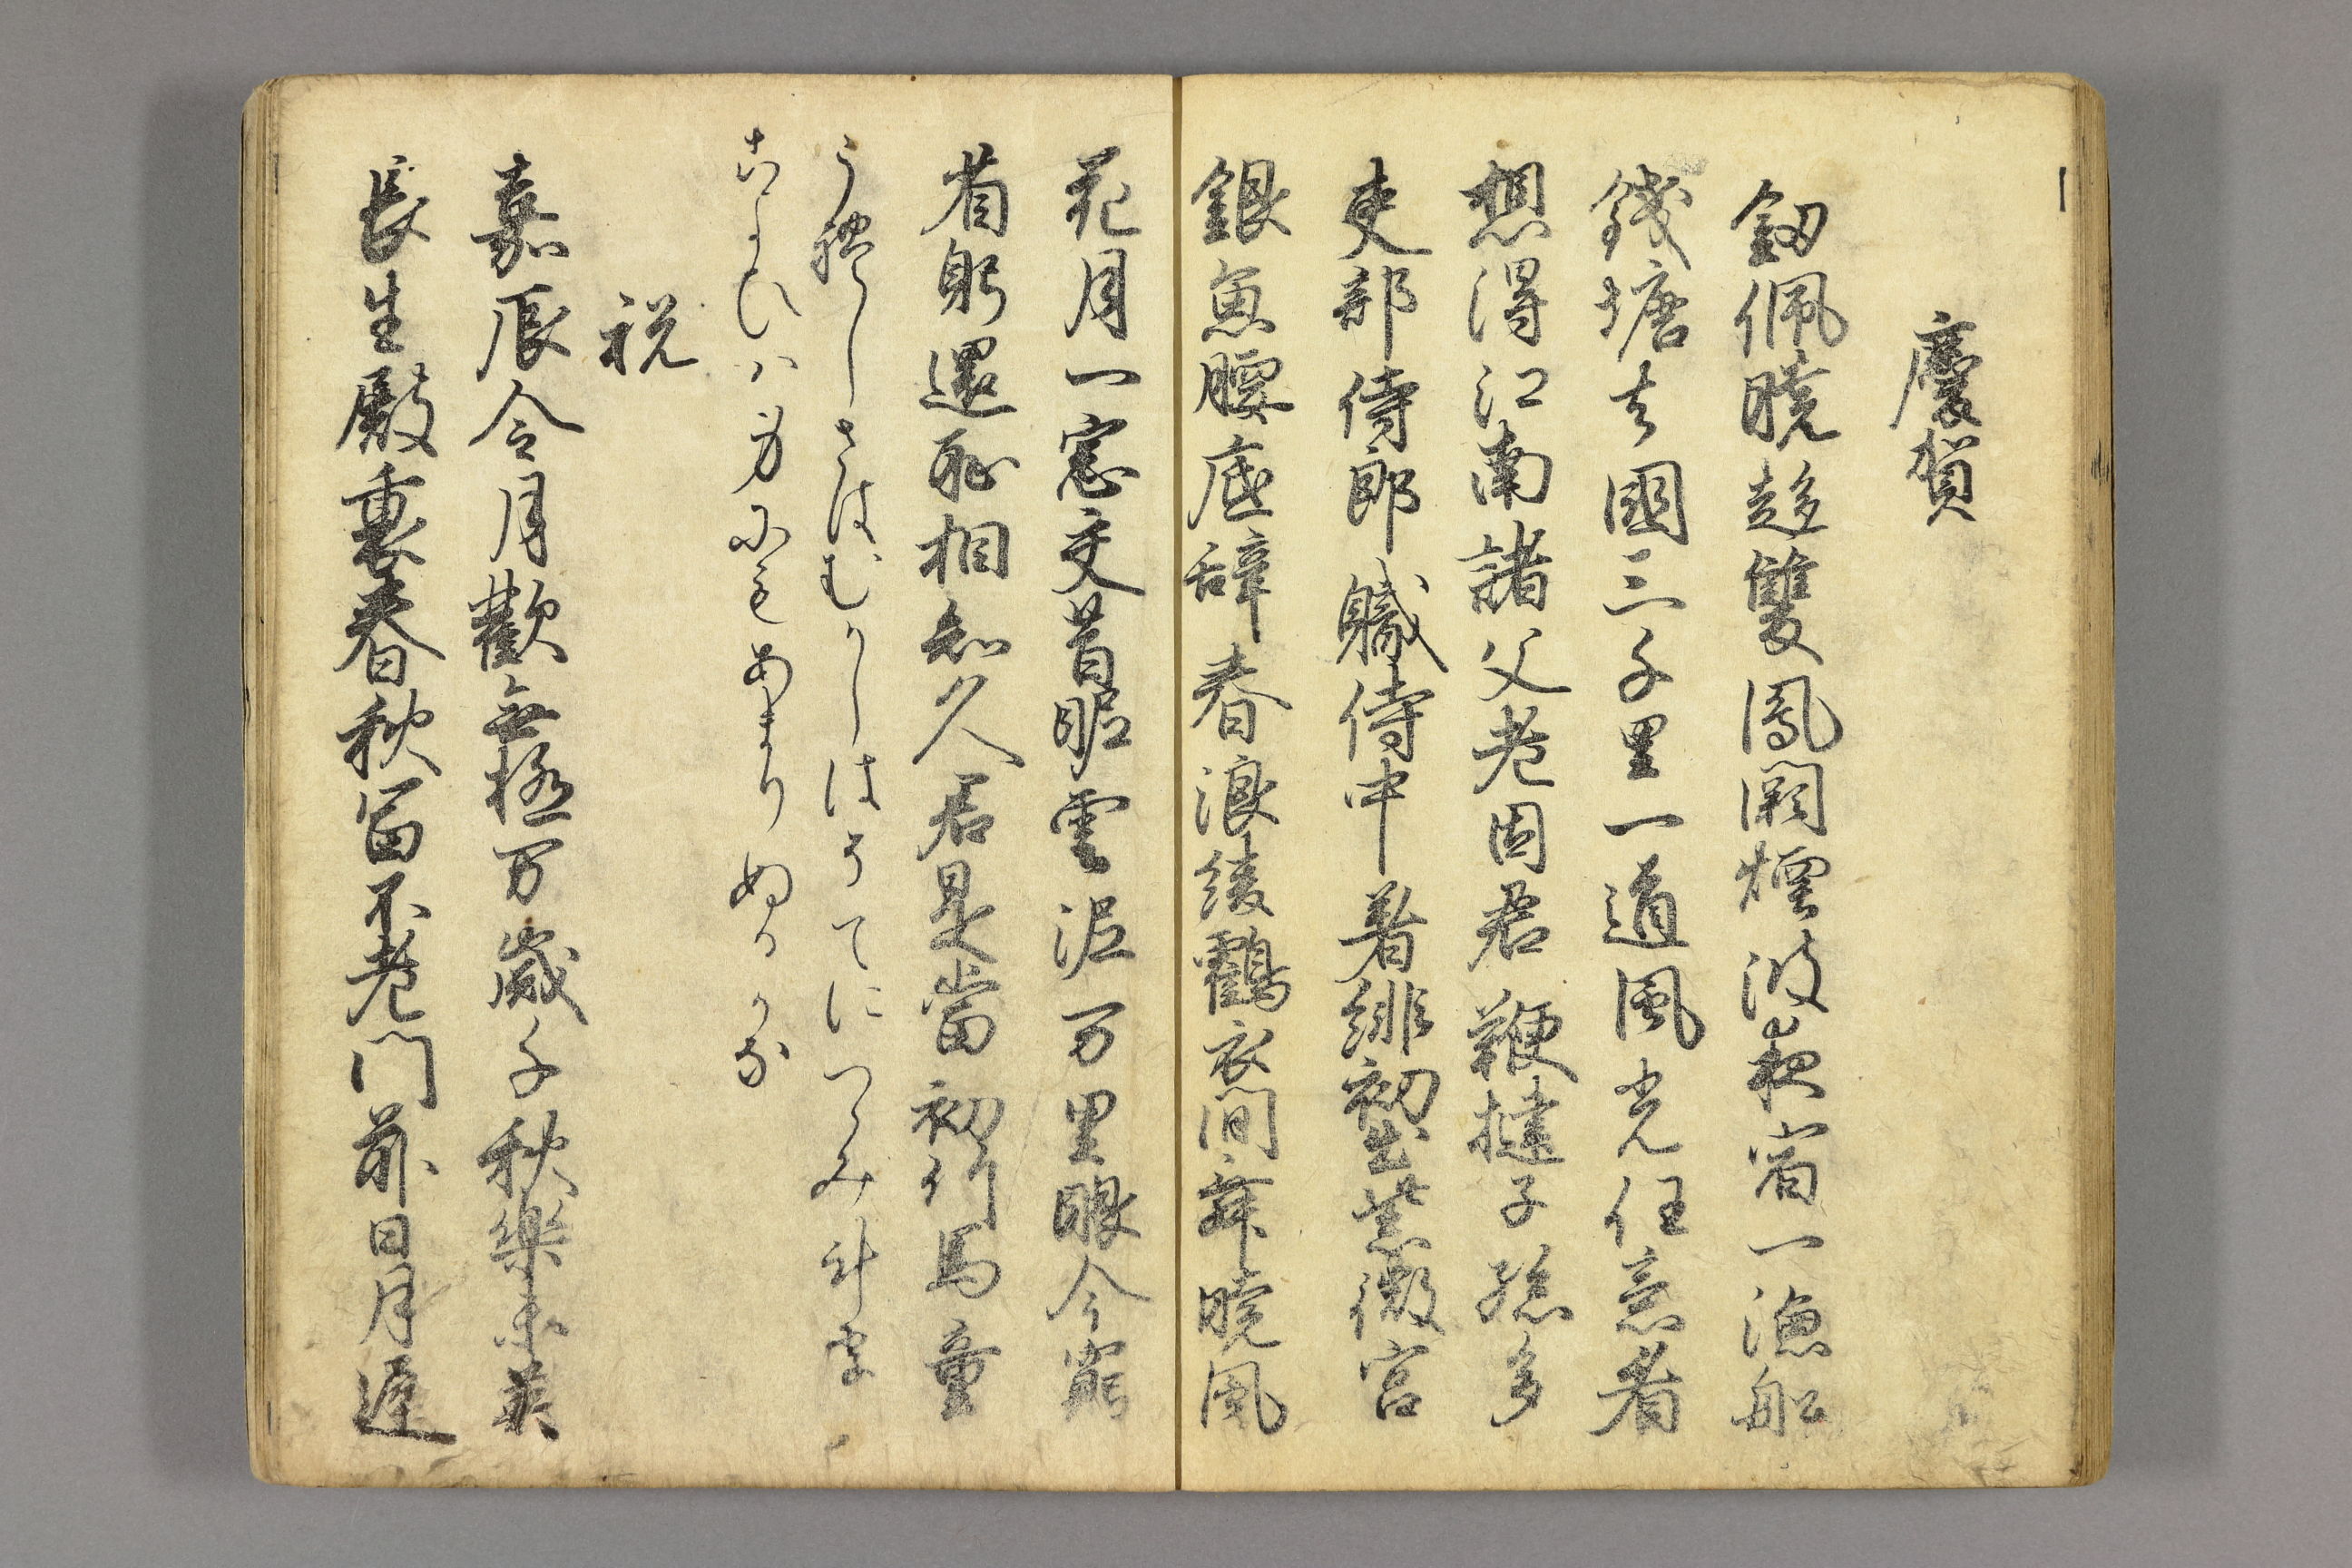 慶賀
釼佩曉趍雙鳳闕煙波夜宿一漁船
錢塘去國三千里一道風光任意看
想得江南諸父老因君鞭撻子孫多
吏部侍郎職侍中著緋初出紫微宮
銀魚腰底辞春浪綾鶴衣間舞曉風
花月一窓交昔昵雲泥万里眼今窮
省躬還恥相知久君是當初竹馬童
うれしさをむかしはそてにつゝみけり
こよひは身にもあまりぬるかな
祝
嘉辰令月歡無極万歲千秋樂未央
長生殿裏春秋冨不老門前日月遲